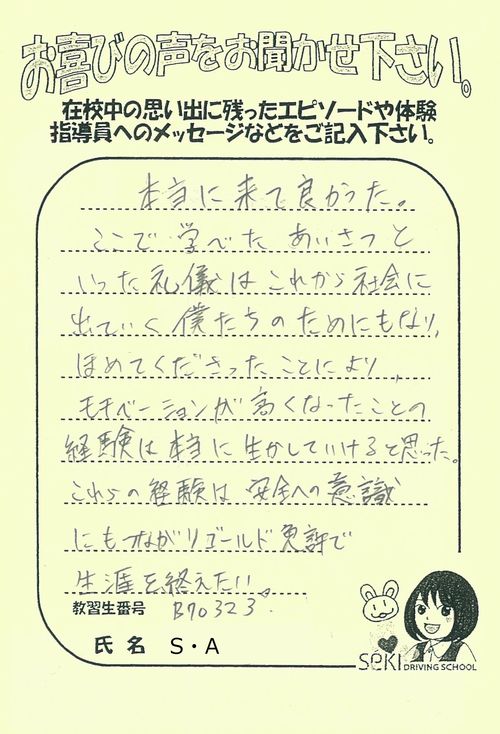 お喜びの声をお聞かせ下さい。
在校中の思い出に残ったエピソードや体験
指導員へのメッセージなどをご記入下さい。
本当に来て良かった。
ここで学べたあいさつと
いった礼儀はこれから社会に
出ていく僕たちのためにもなり、
ほめてくださったことにより、
モチベーションが高くなったことの
経験は本当に生かしていけると思った。
これらの経験は安全への意識
にもつながりゴールド免許で
生涯を終えたい。
教習生番号 B70323.
氏名 S・A
SEKI DRIVING SCHOOL